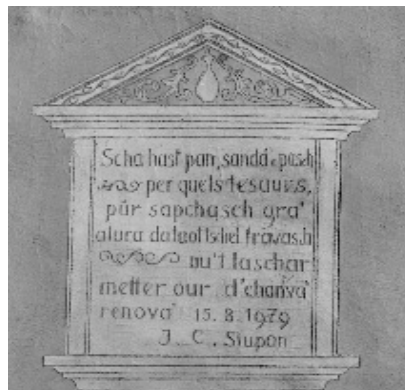 Scha hast pan, sandà e pasch
per quels tesaurs,
pür sapchasch gra'
a lura dalaot tschêl travasch
nu't laschar
metter our d'chanvà
renovà 15. 8. 1979
J. C. Stupon